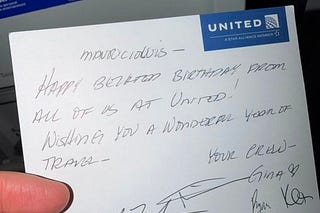 UNITED
A STAR ALLIANCE MEMBER
MAURICIO LUIS –
HAPPY BELATED BIRTHDAY FROM
ALL OF US AT UNITED!
WISHING YOU A WONDERFUL YEAR OF
TRAVEL –
YOUR CREW –
GINA